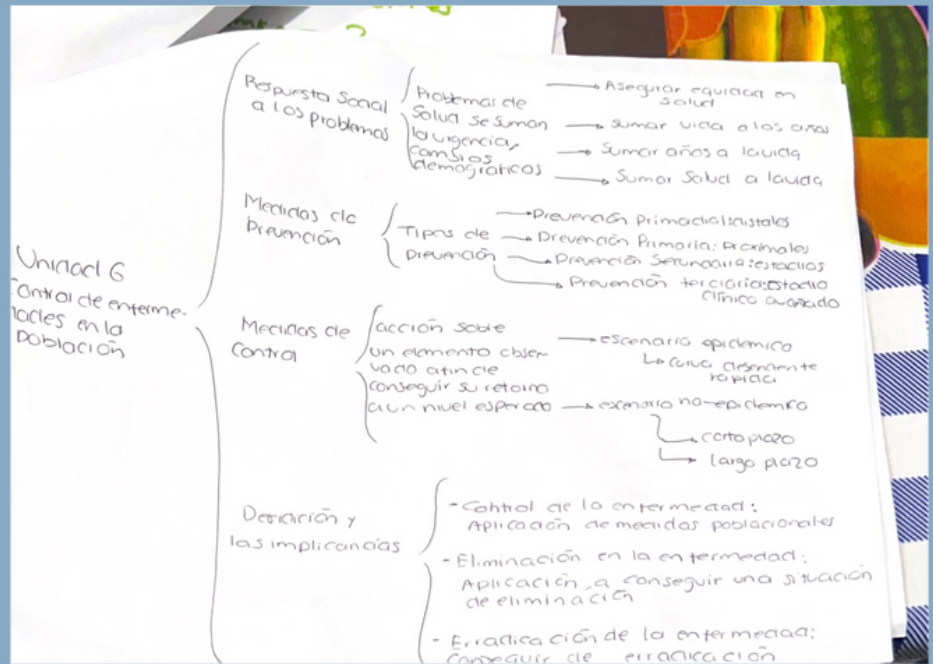 Unidad 6
Control de enferme-
dades en la
Población
Respuesta Social
a los problemas
Problemas de
Salud se suman
la urgencia,
cambios
demográficos
Asegurar equidad en
salud
Sumar vida a los años
Sumar años a la vida
Sumar Salud a la vida
Medidas de
Prevención
Tipos de
prevención
Prevención Primodial: distales
Prevención Primaria: proximales
Prevención Secundaria: estadios
Prevención terciaria: estadio
clínico avanzado
Medidas de
Control
acción sobre
un elemento obser-
vado afin de
conseguir su retorno
a un nivel esperado
escenario epidemico
curva descendente
rapida
escenario no-epidemico
corto plazo
largo plazo
y
las implicancias
- Control de la enfermedad:
Aplicación de medidas poblacionales
- Eliminación en la enfermedad:
Aplicación a conseguir una situación
de eliminación
- Erradicación de la enfermedad:
Conseguir de erradicación